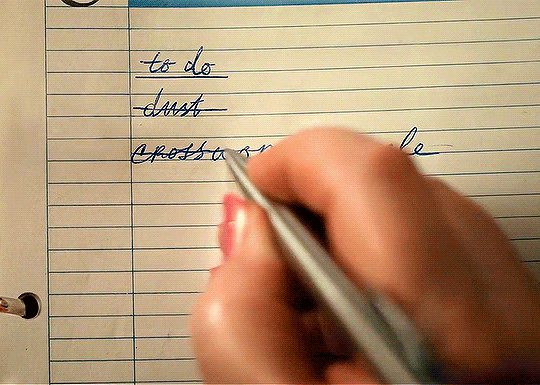 to do
dust
crosswor